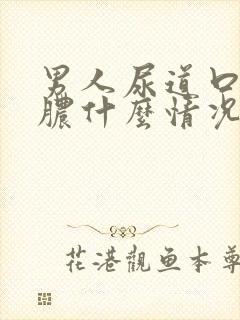 男人尿道口
膿什麼情况
花港觀鱼本尊